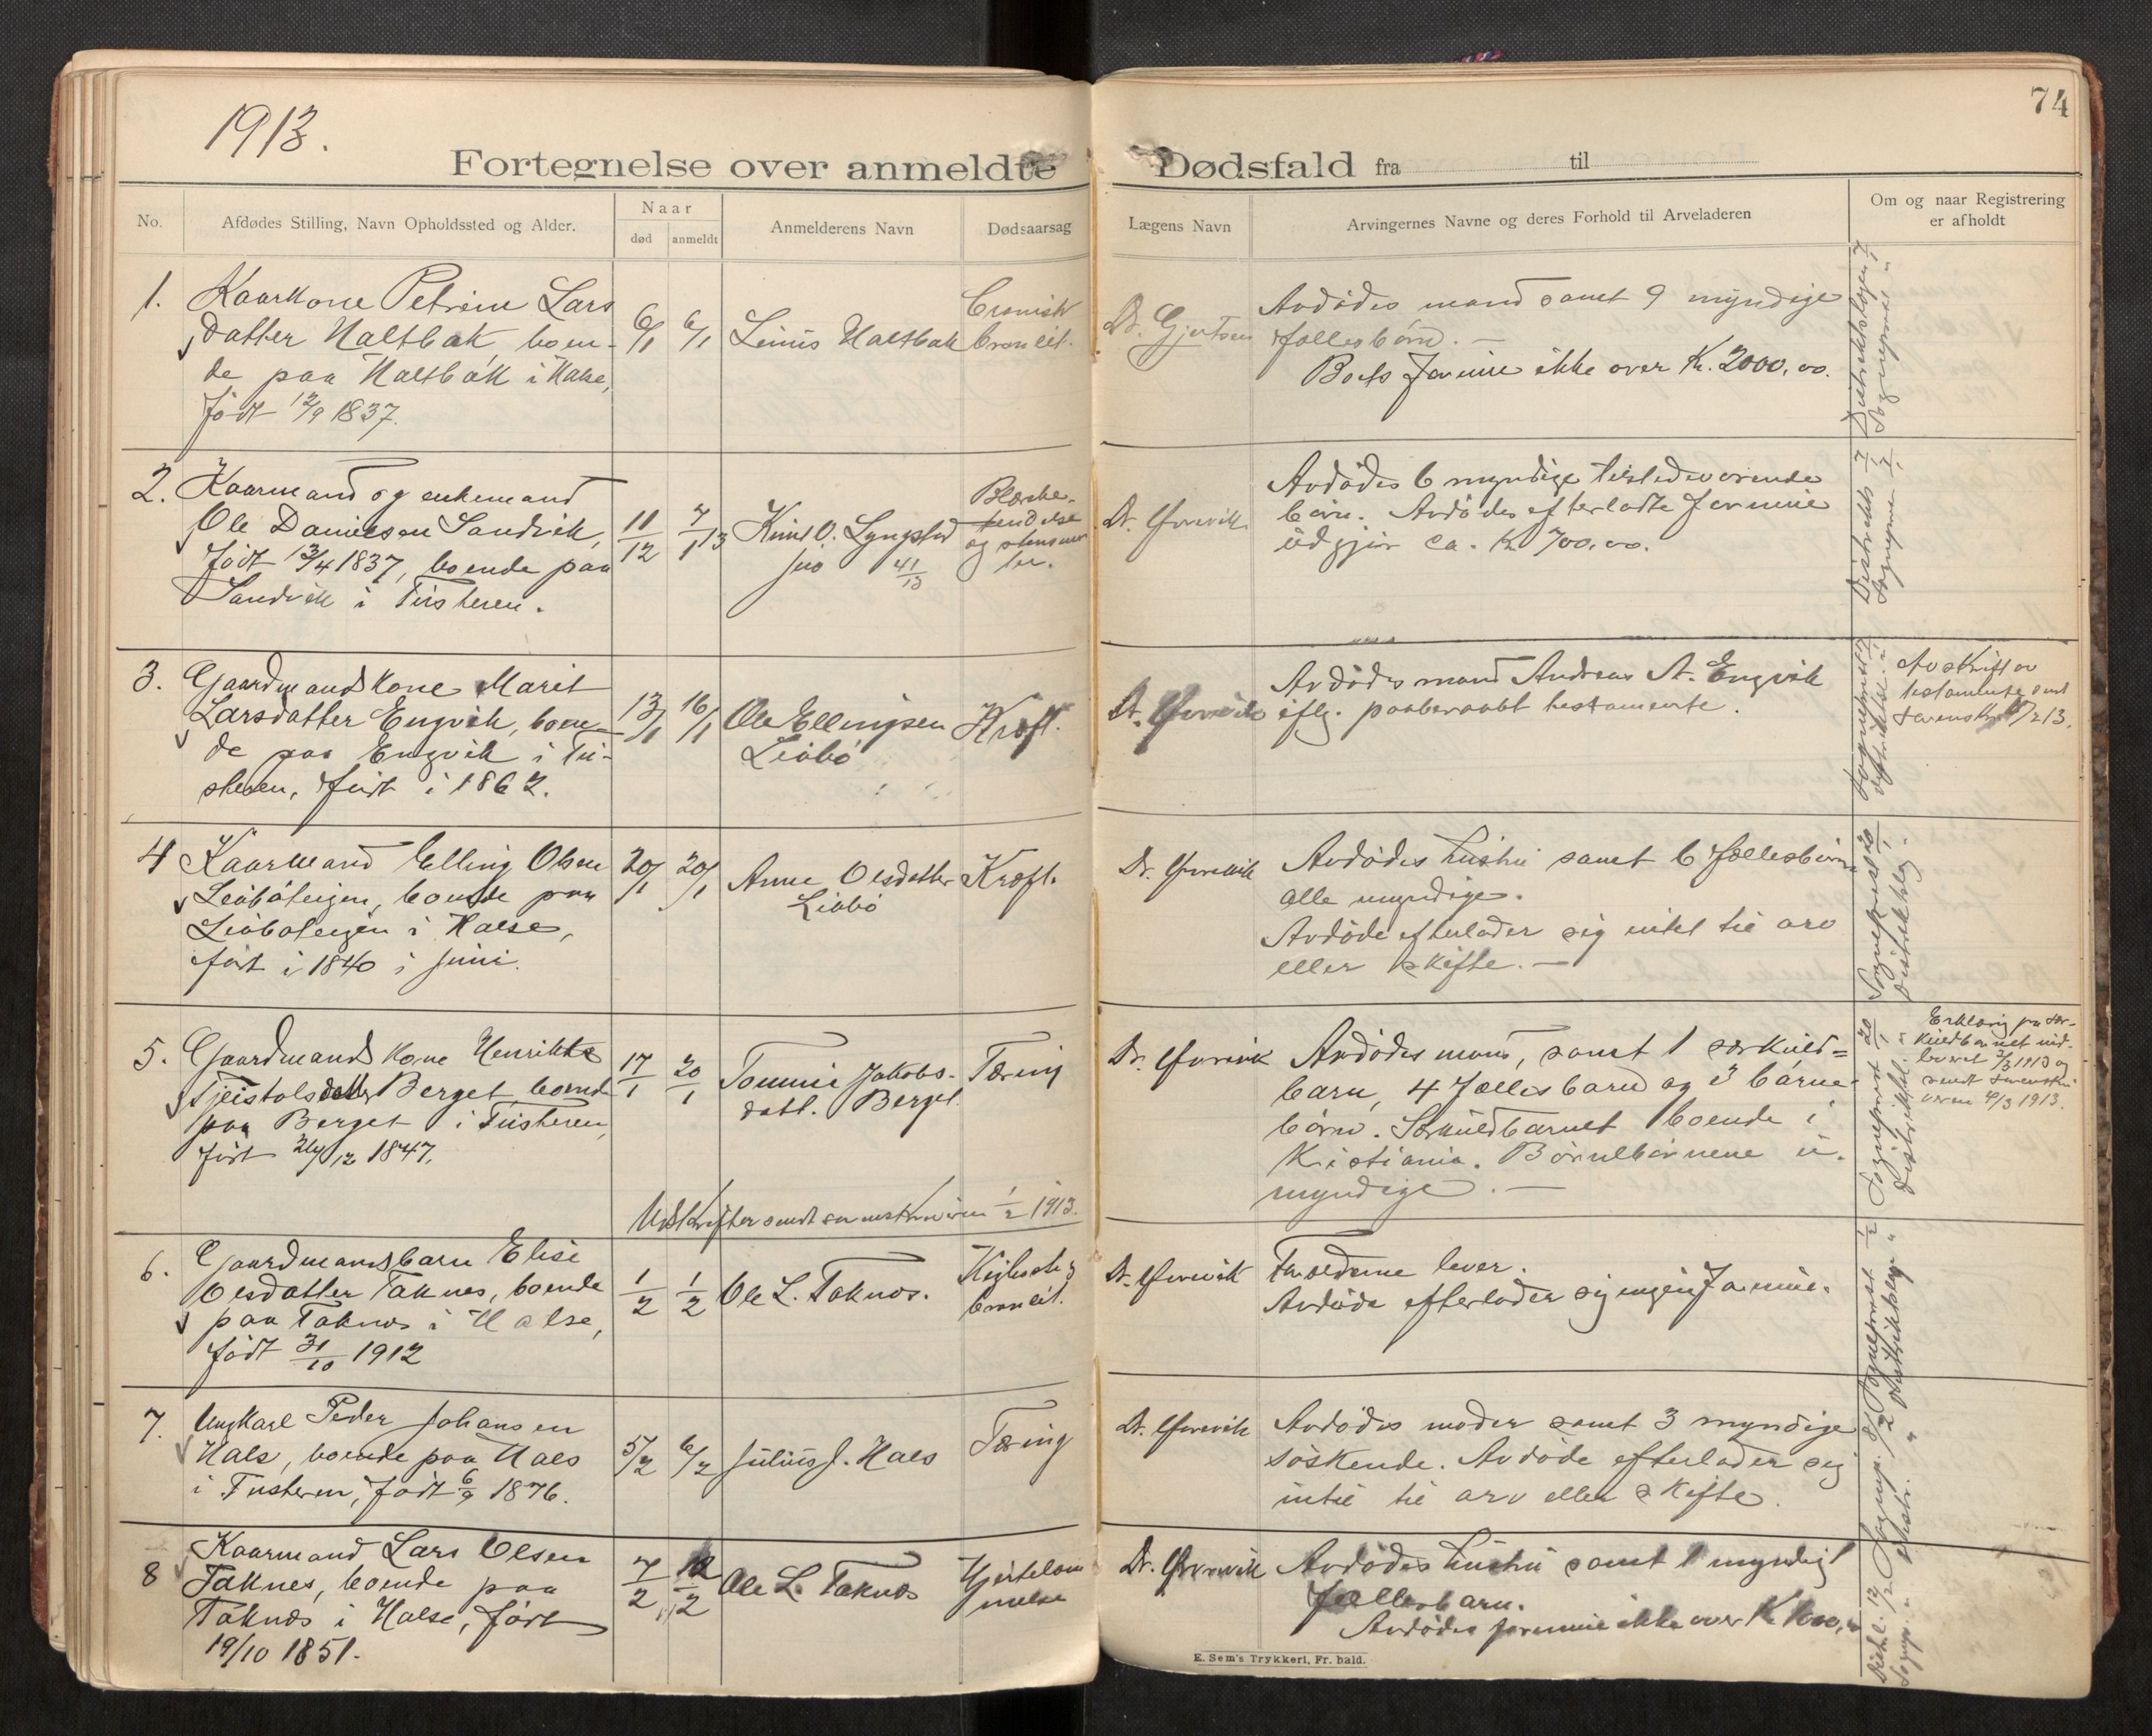 1913.
74
Fortegnelse over anmeldte Dødsfald fra til
No.
Afdødes Stilling, Navn Opholdssted og Alder.
Naar
død
anmeldt
Anmelderens Navn
Dødsaarsag
Lægens Navn
Arvingernes Navne og deres Forhold til Arveladeren
Om og naar Registrering
er afholdt
1.
Kaarkone Petrine Lars
datter Haltbak boen-
de paa Haltbak i Halse,
født 12/9 1837.
6/1
6/1
Linus Haltbak
Cronisk
bronkit.
Dr. Gjertsen
Avdødes mand samt 9 myndige
fællesbørn. —
Boets formue ikke over Kr. 2000,00.
2.
Kaarmand og enkemand
Ole Danielsen Sandvik,
født 13/4 1837, boende paa
Sandvik i Tusteren.
11/12
7/1 13
Knut O. Lyngstad
Blære-
og
Dr.
Avdødes 6 myndige tilstedeværende
børn. Avdødes efterladte formue
udgjør ca. Kr 700,00.
3.
Gaardmandskone Marit
Larsdatter Engvik, boen-
de paa Engvik i Tu-
steren, født i 1862.
13/1
16/1
Ole Ellingsen
Leibø
Kræft.
Dr.
Avdødes mand Andreas A. Engvik
iflg. paaberaabt testamente.
Avskrift av
testamente sendt
4
Kaarmand Elling Olsen
Leibøteigen, boende paa
Leibøteigen i Halse,
født i 1840 i juni.
20/1
20/1
Anne Olsdatter
Leibø
Kræft.
Dr.
Avdødes hustru samt 6 fællesbørn
alle myndige.
Avdøde efterlader sig intet til arv
eller skifte. —
5.
Gaardmandskone Henrikke
Tjeistolsdatter Berget, boende
paa Berget i Tusteren,
født 24/12 1847.
17/1
20/1
Tommine Jakobs-
datt. Berget.
Tæring
Dr.
Avdødes mand, samt 1 særkuld=
barn, 4 fællesbarn og 3 barne-
børn. Særkuldbarnet boende i
Kristiania. Børnebørnene u-
myndige. —
Erklæring fra sær-
kuldbarnet ind-
leveret 3/3 1913 og
sendt sorenskri
veren 4/3 1913.
Utskrifter sendt sorenskriveren 1/2 1913.
6.
Gaardmandsbarn Elise
Olsdatter Taknes, boende
paa Taknes i Halse,
født 31/10 1912
1/2
1/2
Ole L. Taknes.
Kighoste &
bronkit.
Dr.
Forældrene lever.
Avdøde efterlader sig ingen formue.
7.
Ungkarl Peder Johansen
Hals, boende paa Hals
i Tusteren, født 6/9 1876.
5/2
6/2
Julius J. Hals
Tæring
Dr.
Avdødes moder samt 3 myndige
søskende. Avdøde efterlader sig
intet til arv eller skifte.
8
Kaarmand Lars Olsen
Taknes, boende paa
Taknes i Halse, født
19/10 1851.
7/2
Ole L. Taknes
Hjertelam
melse
Dr.
Avdødes hustru samt 1 myndigt
fællesbarn.
Avdødes formue ikke over Kr.
E. Sem's Trykkeri, Fr. hald.